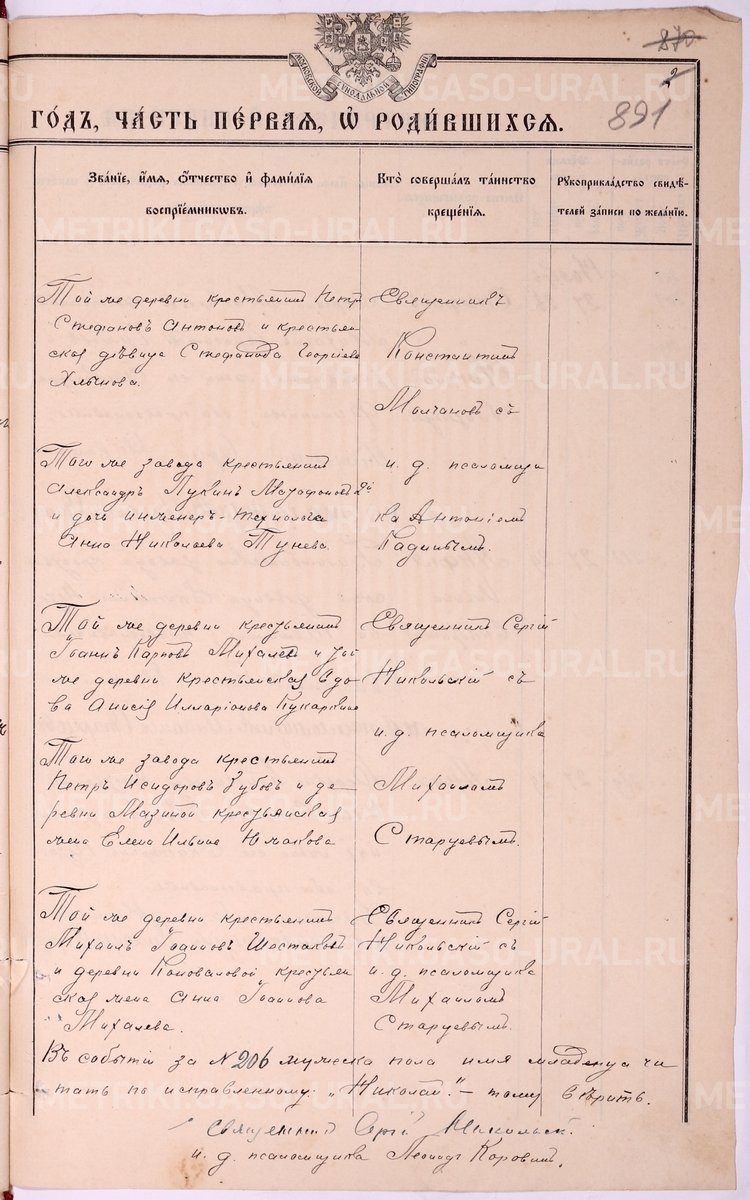 МОСКОВСКОЙ СѴНОДАЛЬНОЙ ТИПОГРАФІИ
870
2
891
ГОДЪ, ЧАСТЬ ПЕРВАЯ, Ѡ РОДИВШИХСЯ.
Званіе, имя, отчество и фамилія воспріемниковъ.
Кто совершалъ таинство крещенія.
Рукоприкладство свидѣтелей записи по желанію.
Той же деревни крестьянинъ Петръ
Стефановъ Антоновъ и крестьян
ская дѣвица Стефанида Георгіева
Хлынова.
Священникъ
Константинъ
Молчановъ съ
и. д. псаломщи
ка Антоніемъ
Того же завода крестьянинъ
Александръ Лукинъ 2й
и дочь инженеръ-технолога
Анна Николаева Тунева.
Той же деревни крестьянинъ
Іоаннъ Карповъ Михалевъ и той
же деревни крестьянская вдо
ва Анисія Илларіонова Кукаркина
Священникъ Сергій
Никольскій съ
и. д. псаломщика
Михаиломъ
Старцевымъ.
Того же завода крестьянинъ
Петръ Исидоровъ Зубовъ и де
ревни Мазиной крестьянская
жена Елена Ильина Южакова
Той же деревни крестьянинъ
Михаилъ Іоанновъ Шестаковъ
и деревни Коноваловой крестьян
ская жена Анна Іоаннова
Михалева.
Священникъ Сергій
Никольскій съ
и. д. псаломщика
Михаиломъ
Старцевымъ.
Въ событіи за №206 мужеска пола имя младенца чи
тать по исправленному: „Николай." – тому вѣрить.
Священникъ Сергій Никольскій.
и. д. псаломщика Леонидъ Коровинъ.
METRIKI.GASO-URAL.RU